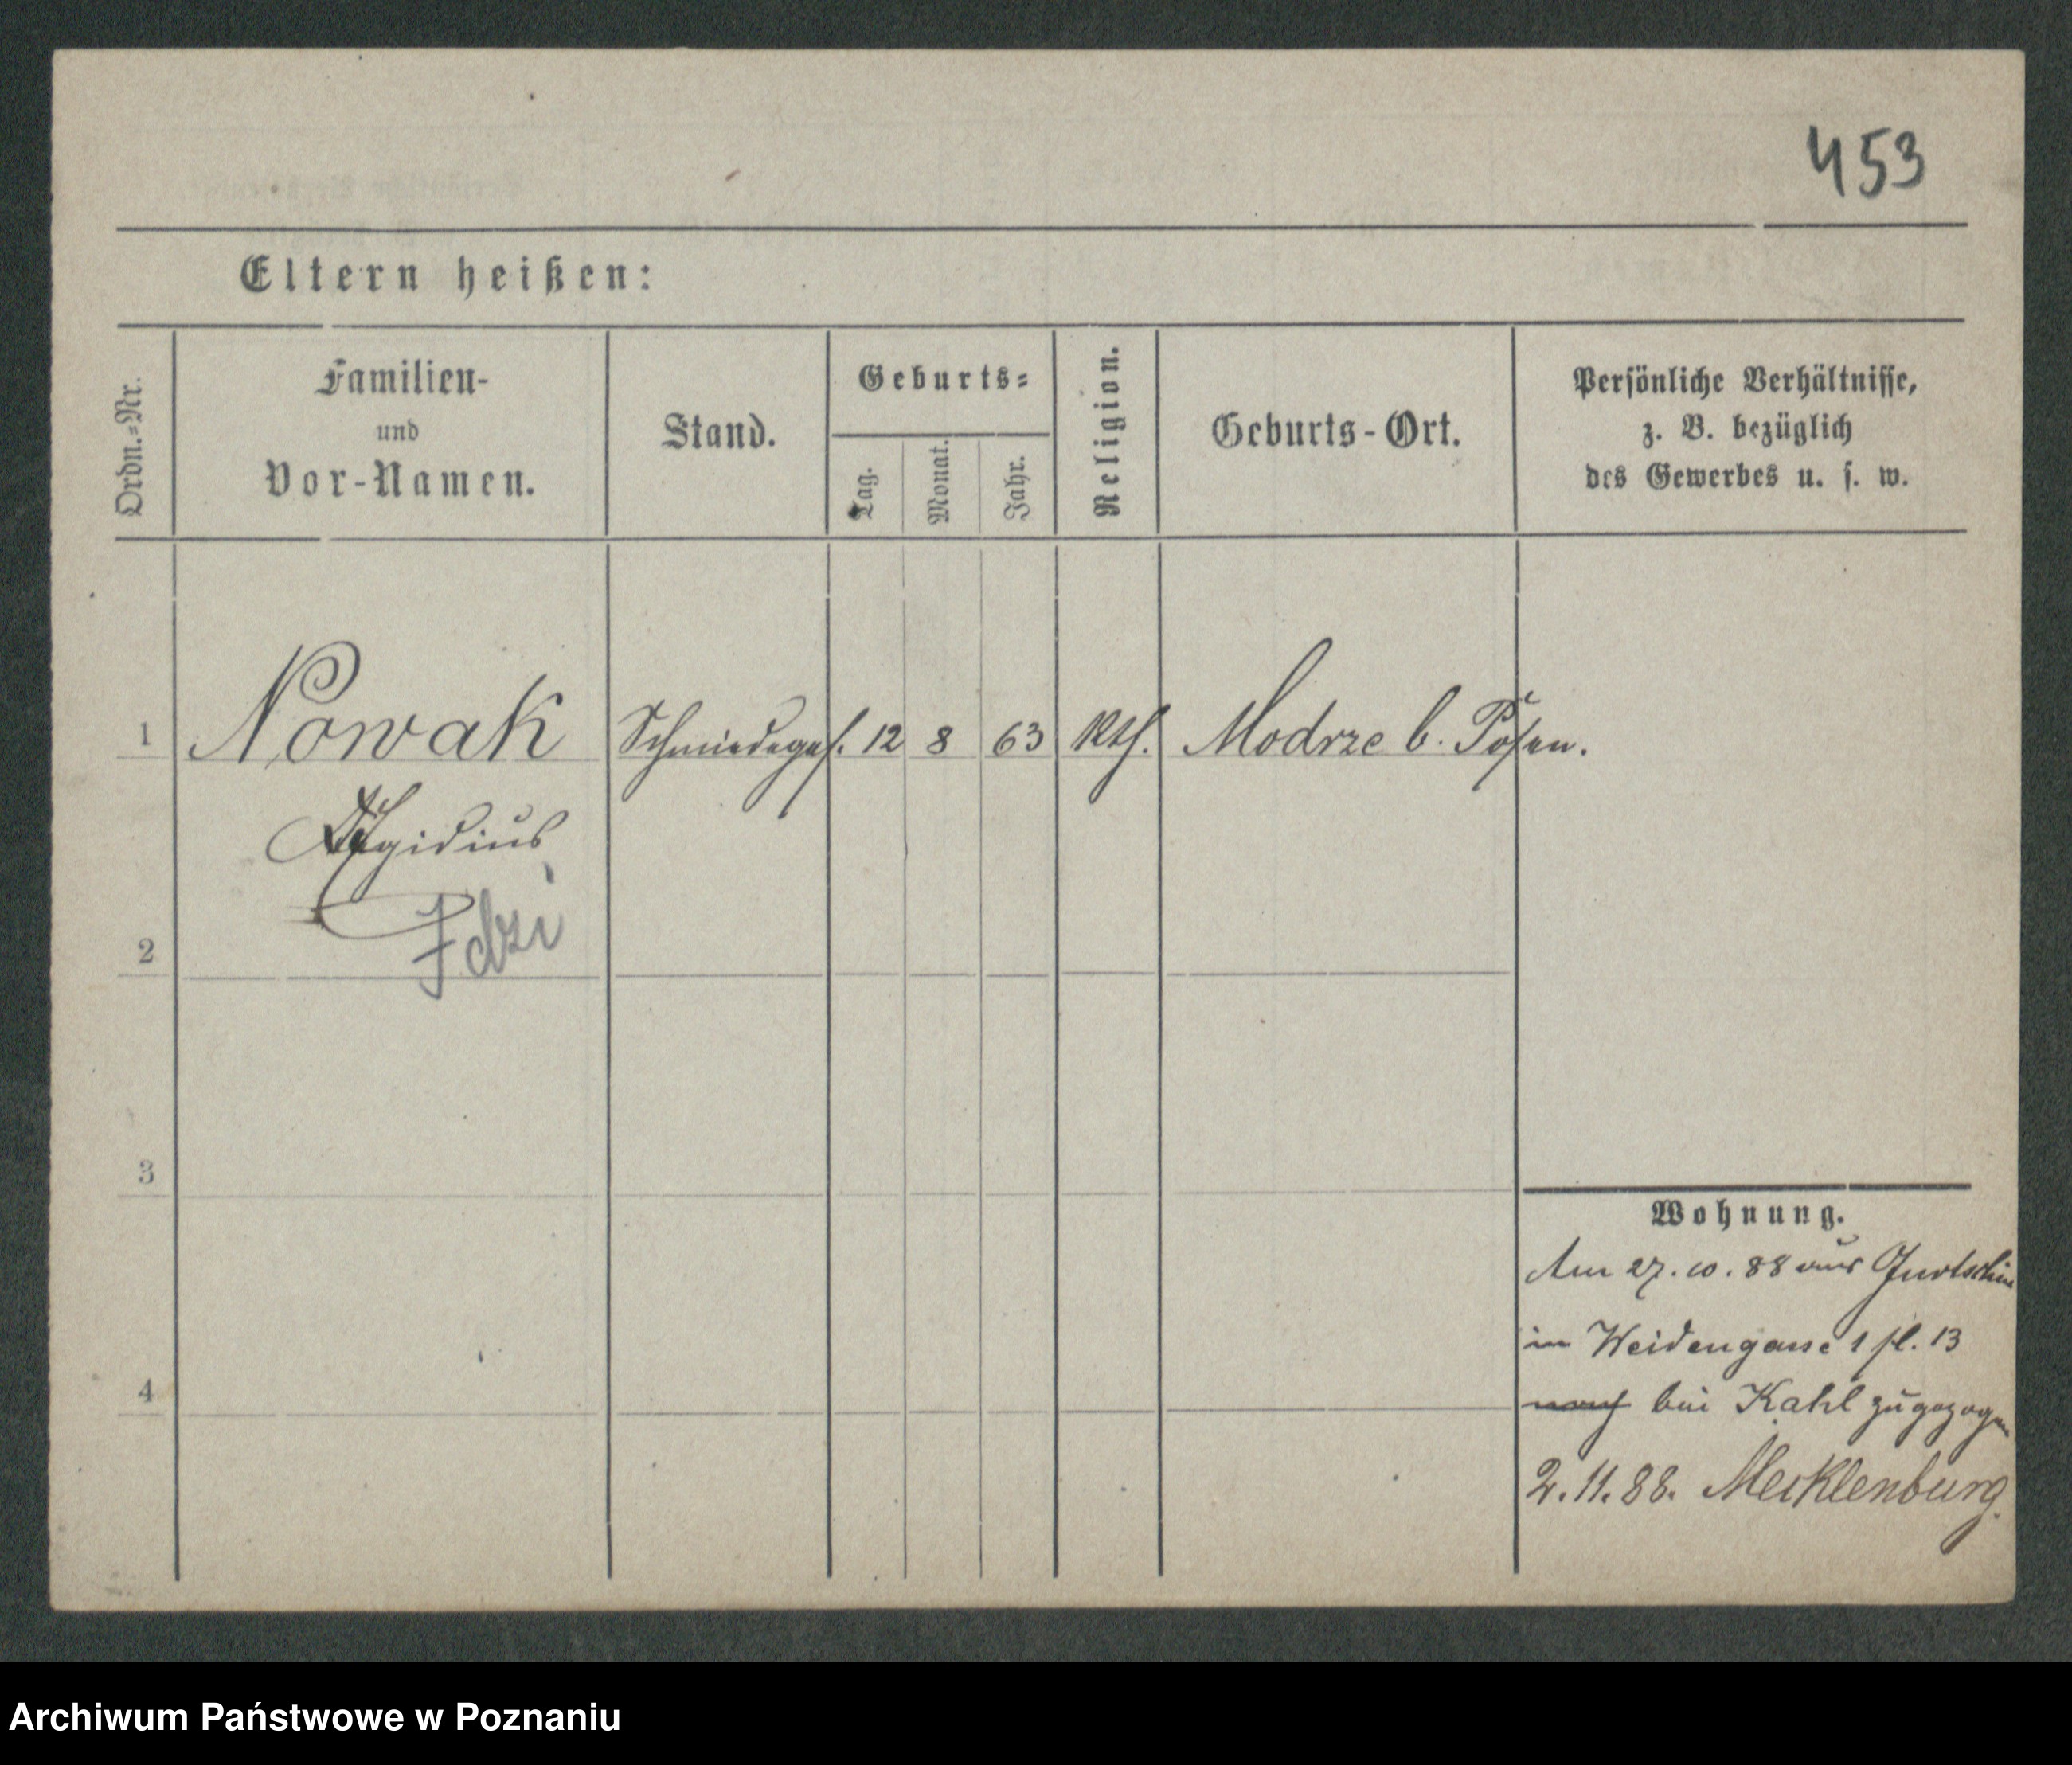 453
Eltern heißen:
Ordn.=Nr.
Familien-
und
Vor-Namen.
Stand.
Geburts=
Tag.
Monat.
Jahr.
Religion.
Geburts-Ort.
Persönliche Verhältnisse,
z. B. bezüglich
des Gewerbes u. s. w.
1 Nowak Schmiedeges. 12 8 63 Kth. Modrze b. Posen.
Ägidius
Idzi
2
3
4
Wohnung.
Am 27. 10. 88 aus
in Weidengasse 1 pl. 13
nach bei Kahl zugezogen
2. 11. 88. Mecklenburg.
Archiwum Państwowe w Poznaniu